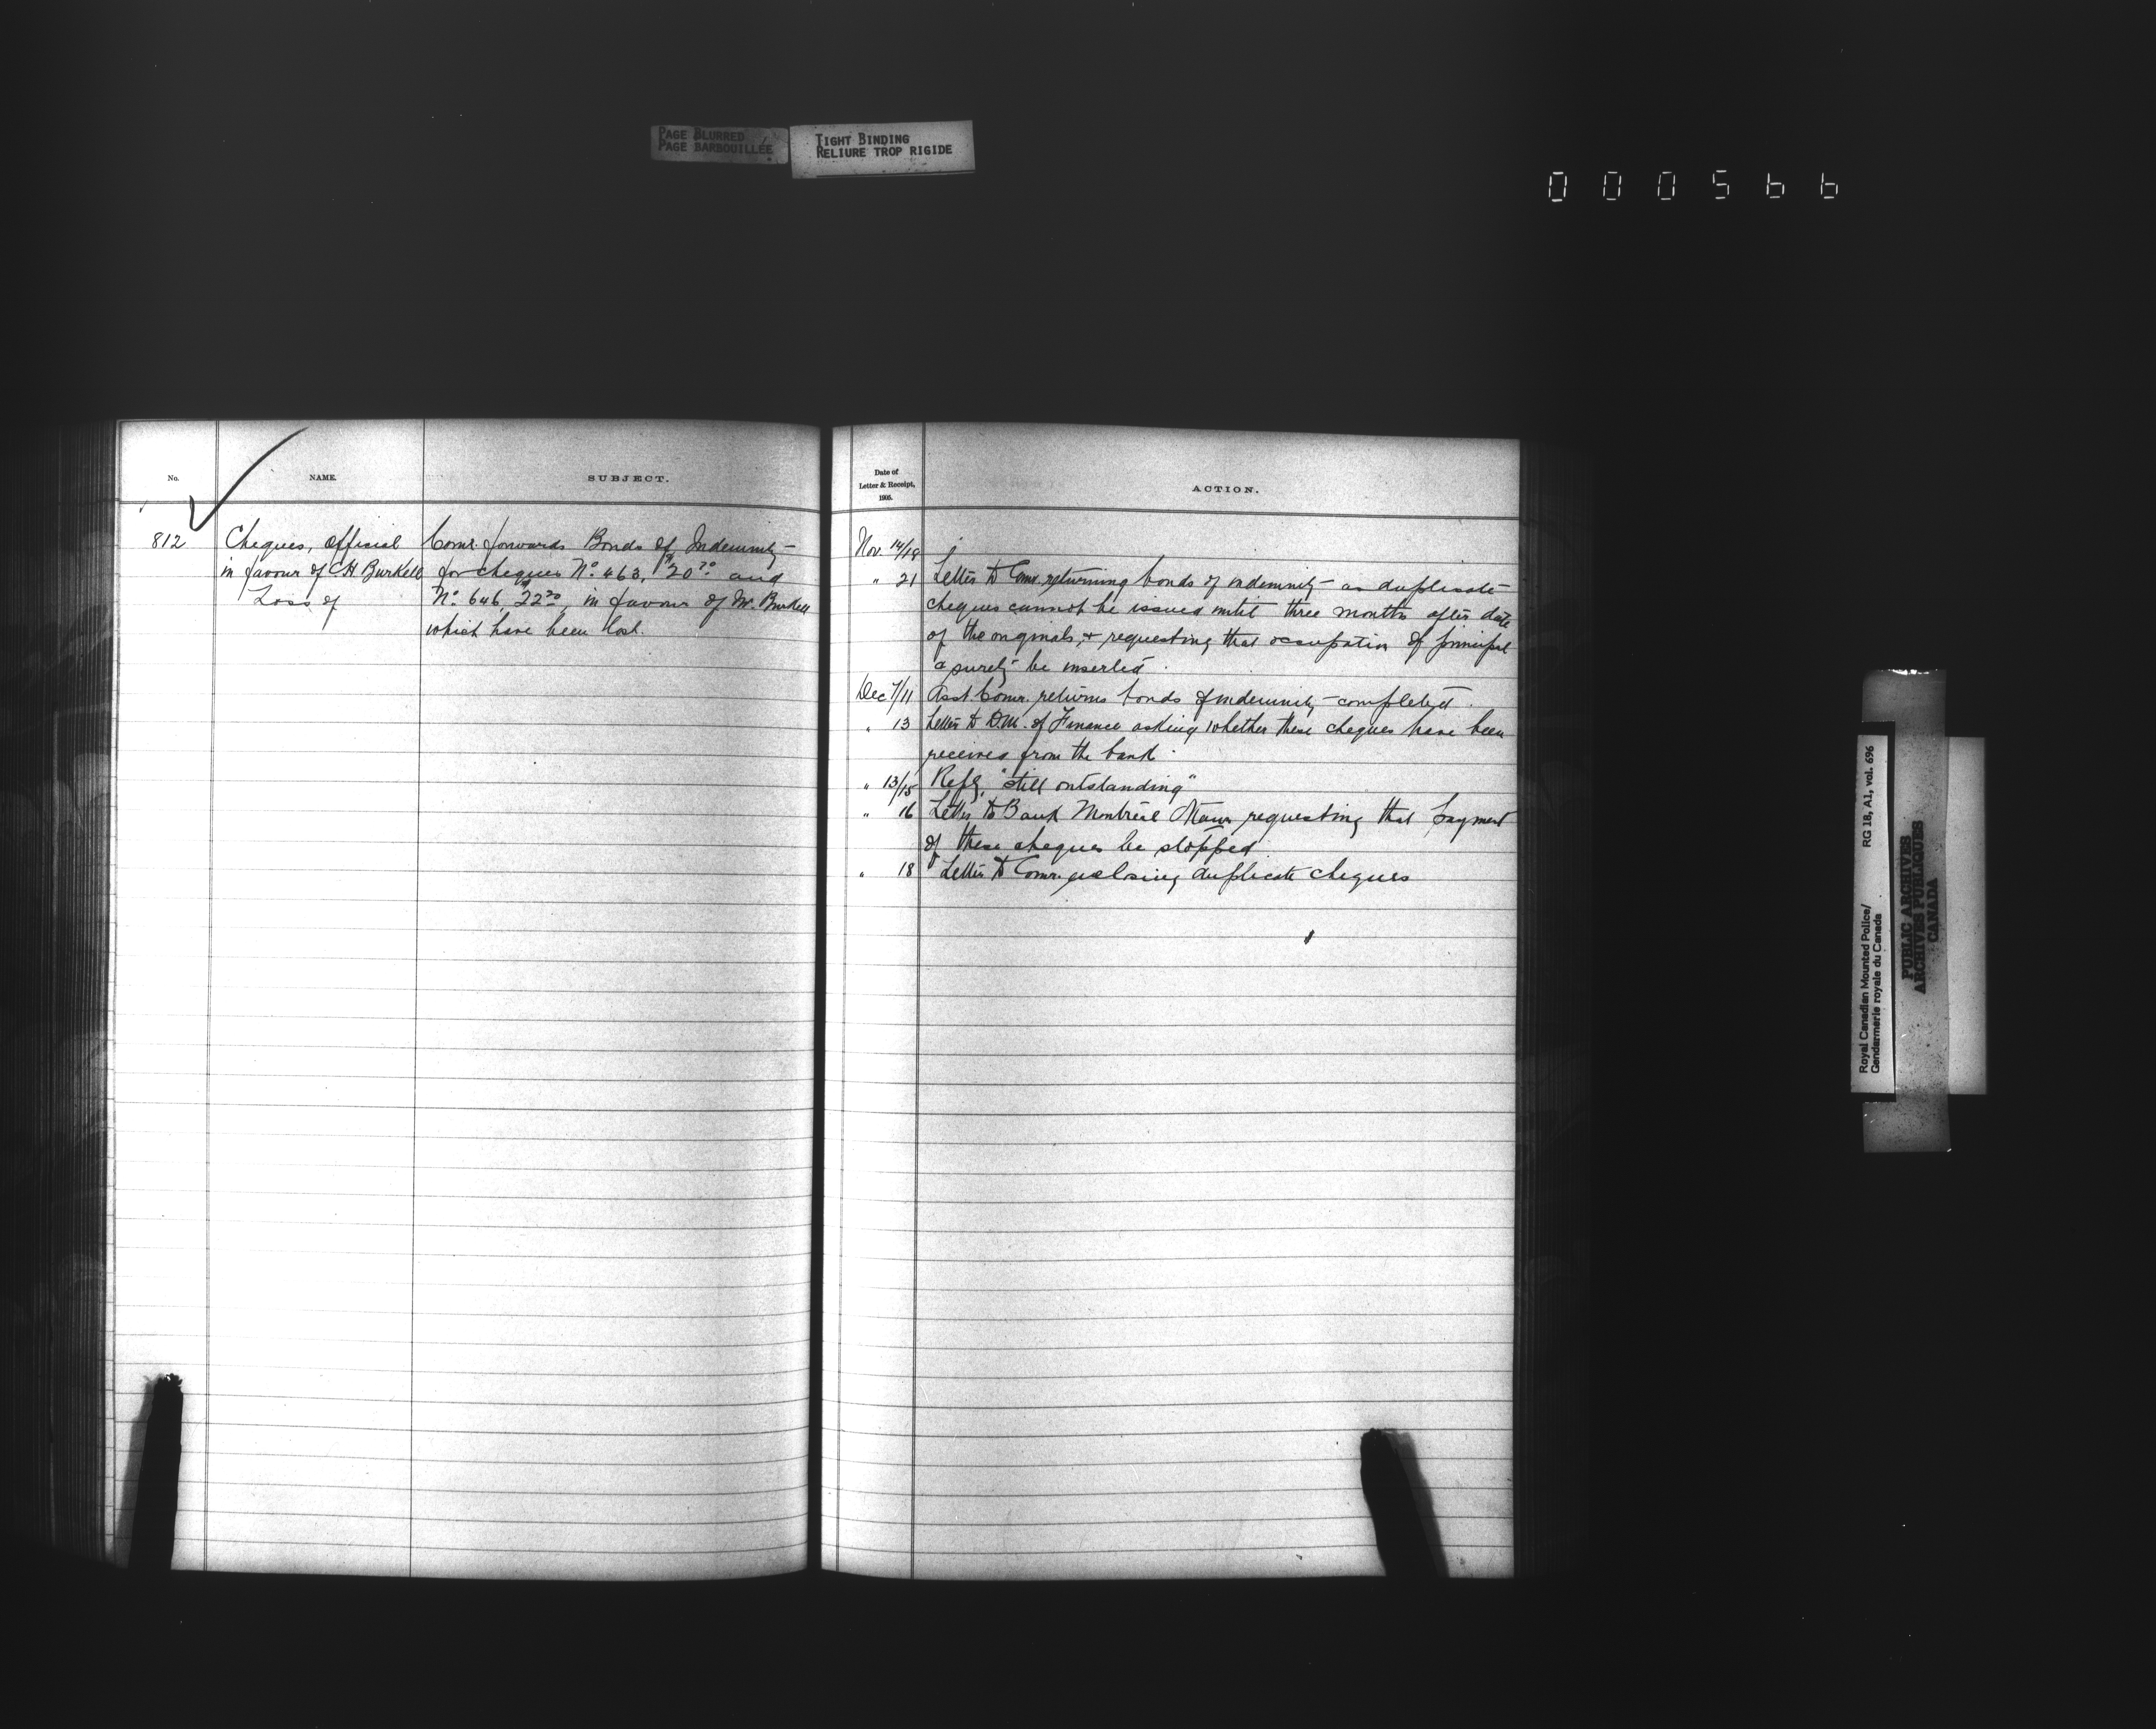 PAGE BLURRED
PAGE BARBOUILLÉE
TIGHT BINDING
RELIURE TROP RIGIDE
000566
No.
NAME.
SUBJECT.
812
Cheques, official
in favour of C.H. Burkell
Loss of
Comr. forwards Bonds of Indemnity
for cheques No. 463, $20 70 and
No. 646, 22 20 in favour of Mr. Burkell
which have been lost.
Date of
Letter & Receipt,
1905.
ACTION.
Nov. 14/18
" 21 Letter to Comr. returning bonds of indemnity as duplicate
cheques cannot be issued until three months after date
of the originals, & requesting that occupation of principal
a surety be inserted.
Dec 7/11 Asst Comr. returns bonds of indemnity completed.
" 13 Letter to D.M. of Finance asking whether these cheques have been
received from the bank.
" 13/15 Reply, "still outstanding"
" 16 Letter to Bank Montreal Ottawa requesting that payment
of these cheques be stopped
" 18 Letter to Comr. enclosing duplicate cheques
Royal Canadian Mounted Police/
Gendarmerie royale du Canada
RG 18, A1, vol. 696
PUBLIC ARCHIVES
ARCHIVES PUBLIQUES
CANADA